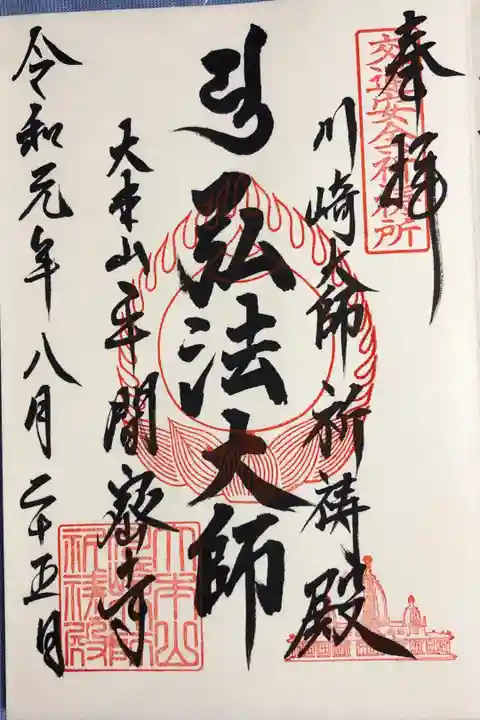 奉拝
交通安全祈祷所
川崎大師祈祷殿
弘法大師
大本山平間寺
令和元年八月二十五日